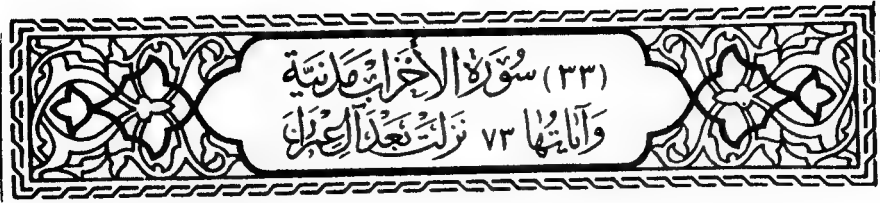 (٣٣) سُورَة الأَحْزَابِ مَدَنِيَّة
وَآيَاتُهَا ٧٣ نَزَلَتْ بَعْدَ آلِ عِمْرَانَ